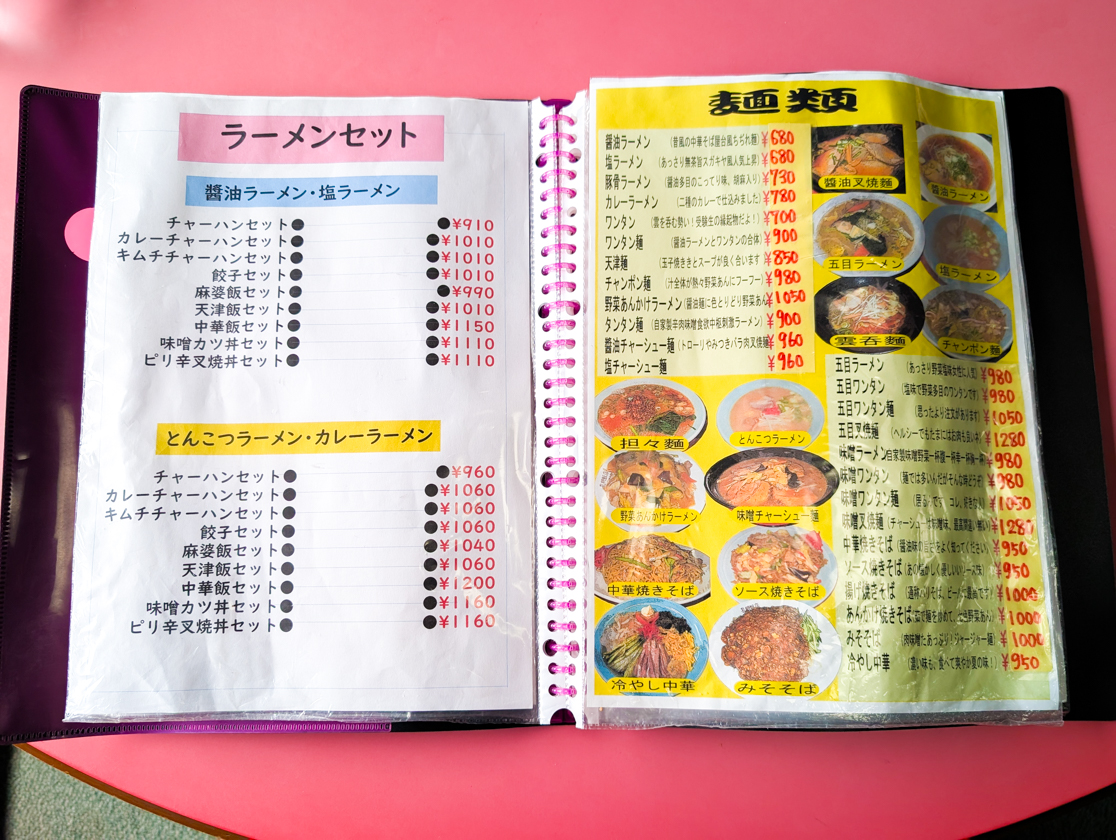 ラーメンセット
醤油ラーメン・塩ラーメン
チャーハンセット ¥910
カレーチャーハンセット ¥1010
キムチチャーハンセット ¥1010
餃子セット ¥1010
麻婆飯セット ¥990
天津飯セット ¥1010
中華飯セット ¥1150
味噌カツ丼セット ¥1110
ピリ辛叉焼丼セット ¥1110
とんこつラーメン・カレーラーメン
チャーハンセット ¥960
カレーチャーハンセット ¥1060
キムチチャーハンセット ¥1060
餃子セット ¥1060
麻婆飯セット ¥1040
天津飯セット ¥1060
中華飯セット ¥1200
味噌カツ丼セット ¥1160
ピリ辛叉焼丼セット ¥1160
麺類
醤油ラーメン (昔風の中華そば屋台風ちぢれ麺) ¥680
塩ラーメン (あっさり無茶旨スガキヤ風人気上昇) ¥680
豚骨ラーメン (醤油多目のこってり味、胡麻入り) ¥730
カレーラーメン (二種のカレーで仕込みました) ¥780
ワンタン (雲を呑む勢い!受験生の縁起物だよ!) ¥700
ワンタン麺 (醤油ラーメンとワンタンの合体) ¥900
天津麺 (玉子焼ききとスープが良く合います ¥850
チャンポン麺 (汁全体が熱々野菜あんにフーフー) ¥980
野菜あんかけラーメン (醤油麺に色とりどり野菜あん ¥1050
タンタン麺 (自家製辛肉味噌食欲中枢刺激ラーメン) ¥900
醤油チャーシュー麺 (トローリやみつきバラ肉叉焼麺 ¥960
塩チャーシュー麺 ¥960
醤油叉焼麺
醤油ラーメン
五目ラーメン
塩ラーメン
雲呑麺
チャンポン麺
五目ラーメン (あっさり野菜塩味女性に人気) ¥980
五目ワンタン (塩味で野菜多目のワンタンです) ¥980
五目ワンタン麺 (思ったより注文があります) ¥1050
五目叉焼麺 (ヘルシーでもたまにはお肉も良いネ) ¥1280
味噌ラーメン ¥980
味噌ワンタン ¥980
味噌ワンタン麺 ¥1050
味噌叉焼麺 ¥1280
中華焼きそば ¥950
ソース焼きそば ¥950
揚げ焼きそば ¥1000
あんかけ焼きそば ¥1000
みそそば (肉味噌たあっぷり!ジャージャー麺) ¥1000
冷やし中華 (濃い味も、食べて爽やか夏の味!) ¥950
担々麺
とんこつラーメン
野菜あんかけラーメン
味噌チャーシュー麺
中華焼きそば
ソース焼きそば
冷やし中華
みそそば